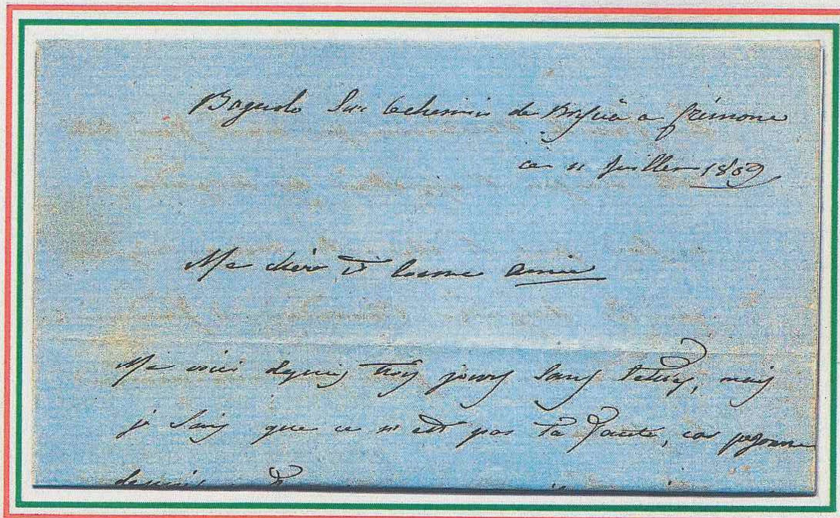 Bagnolo Sur le chemin de Brescia a Crémone
ce 11 juillet 1859
Ma chère et bonne amie
Me voici depuis trois jours sans lettres, mais
je sais que ce n'est pas ta faute, car personne
depuis